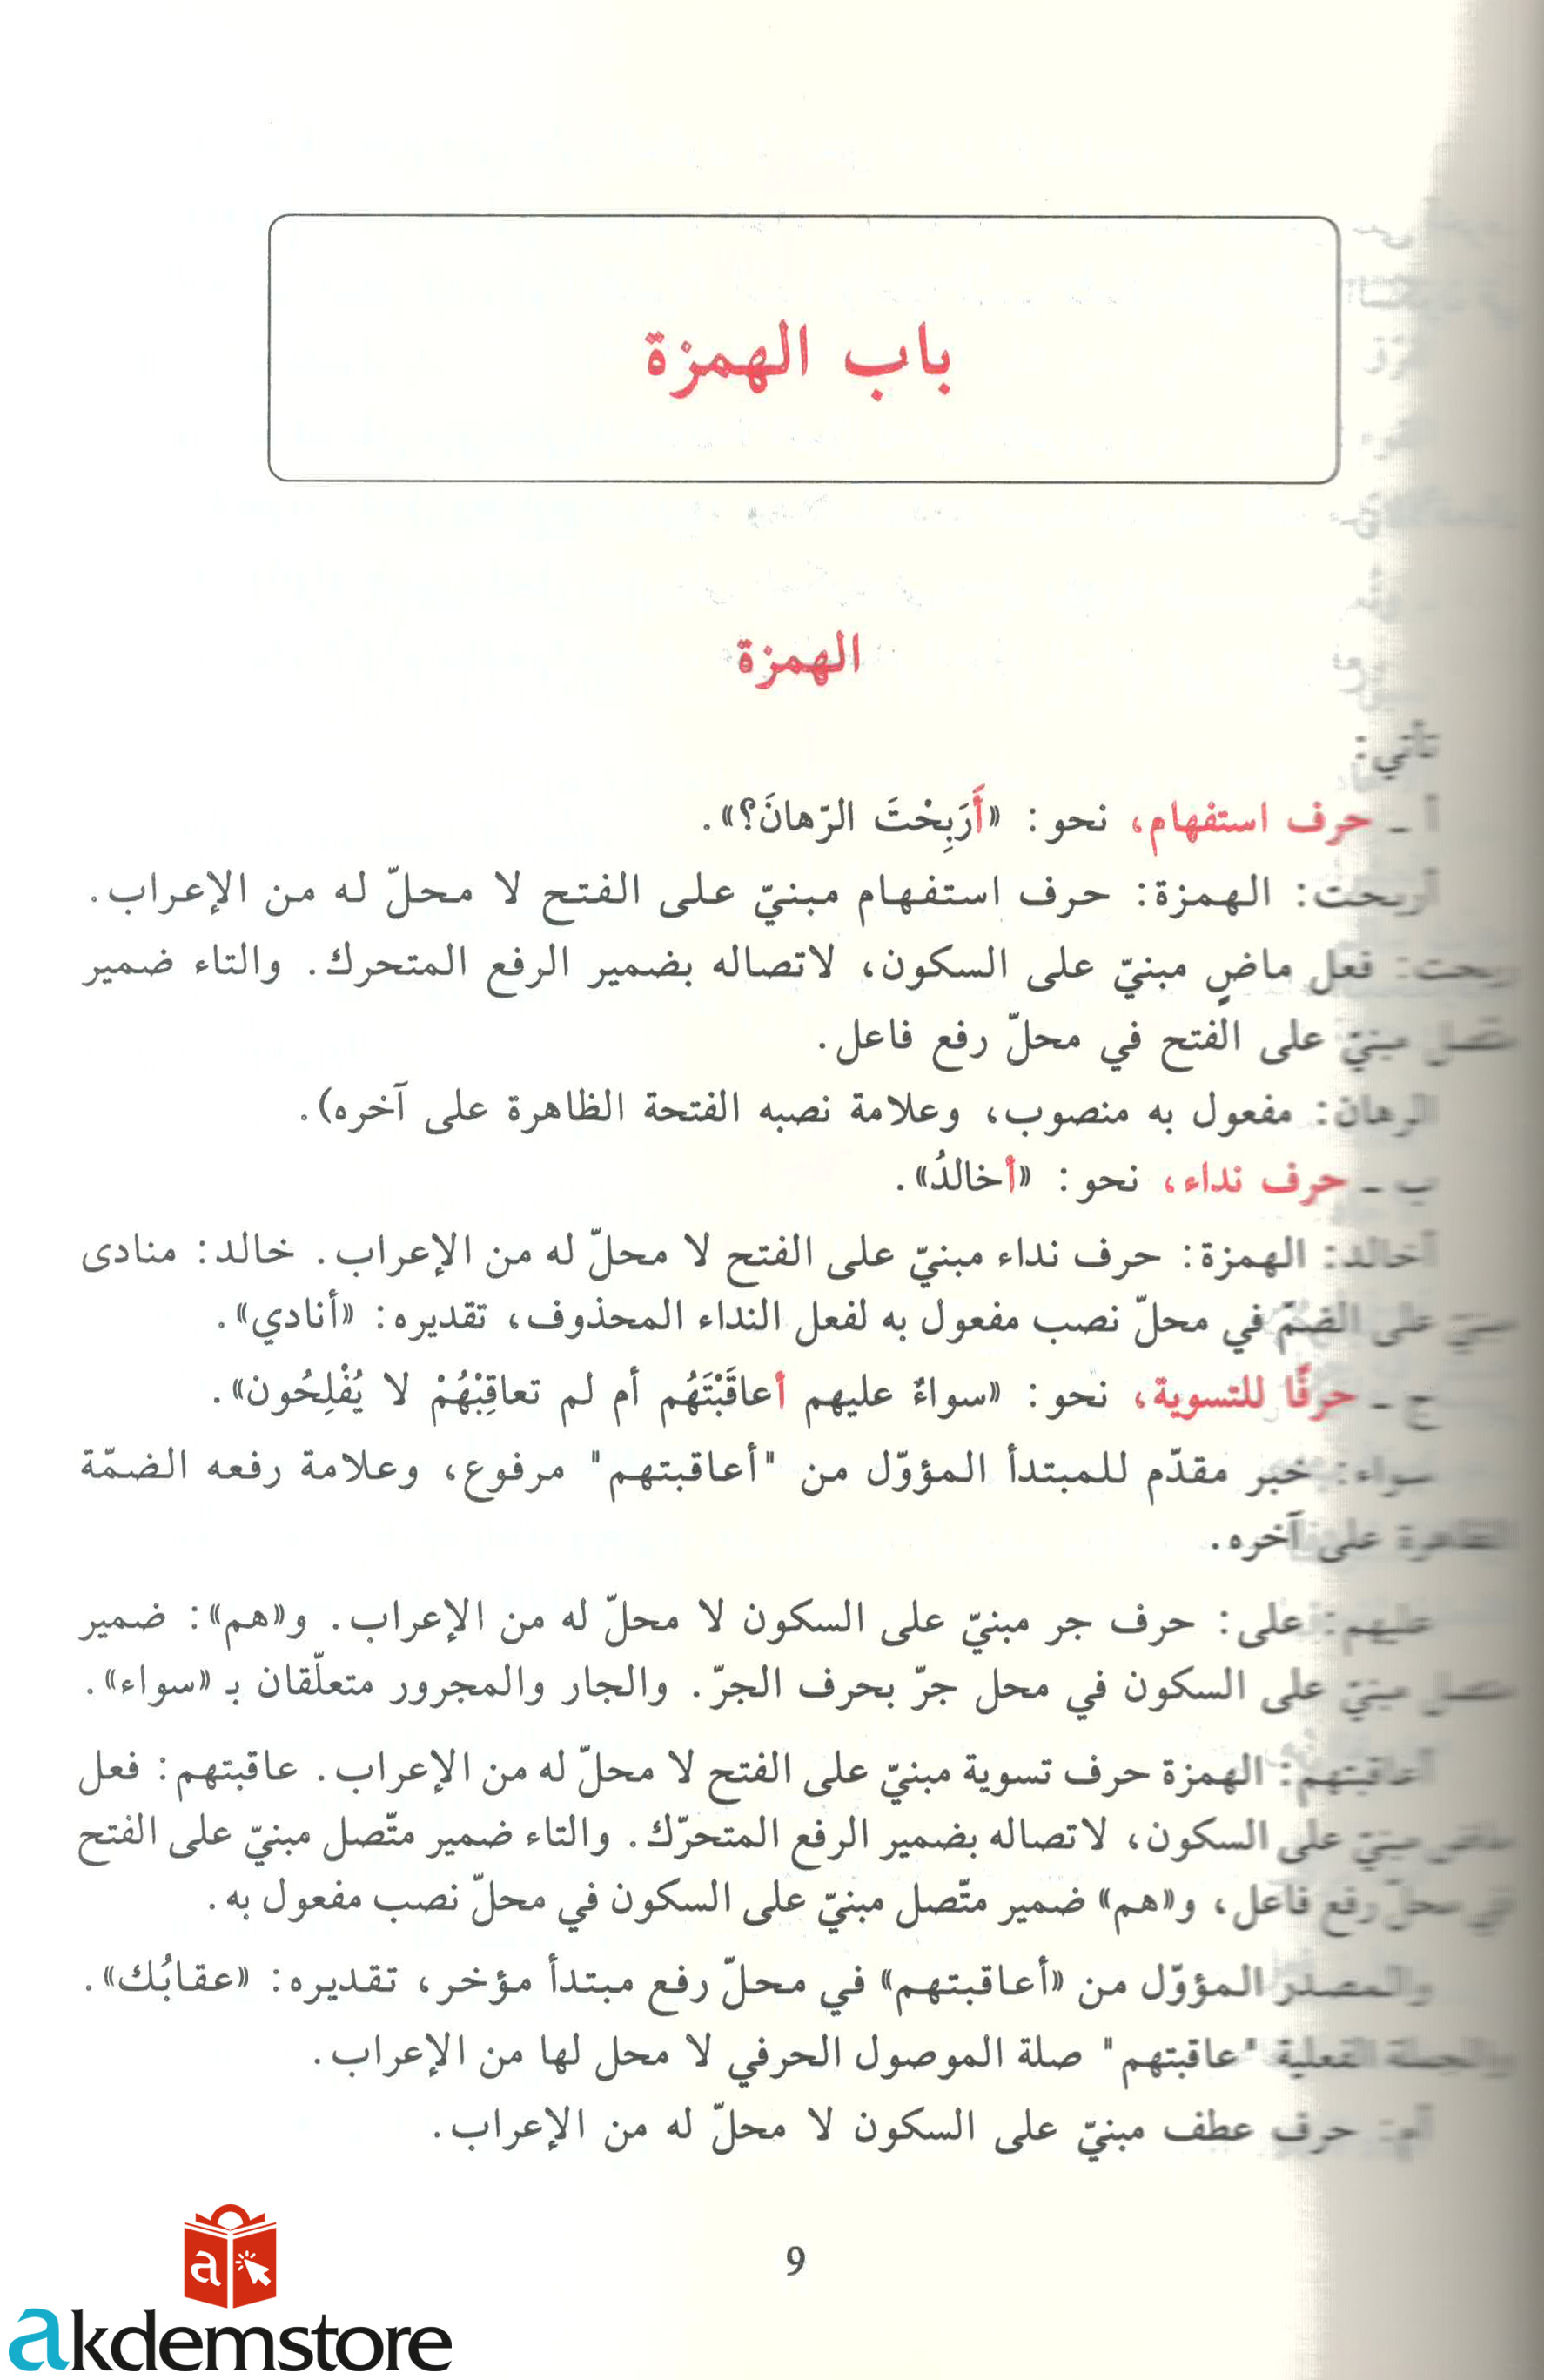 باب الهمزة
الهمزة
تأتي:
أ ـ حرف استفهام، نحو: «أَرَبِحْتَ الرّهانَ؟».
أربحت: الهمزة: حرف استفهام مبنيّ على الفتح لا محلّ له من الإعراب.
ربحت: فعل ماضٍ مبنيّ على السكون، لاتصاله بضمير الرفع المتحرك. والتاء ضمير
متصل مبنيّ على الفتح في محلّ رفع فاعل.
الرهان: مفعول به منصوب، وعلامة نصبه الفتحة الظاهرة على آخره).
ب ـ حرف نداء، نحو: «أخالدُ».
أخالد: الهمزة: حرف نداء مبنيّ على الفتح لا محلّ له من الإعراب. خالد: منادى
مبنيّ على الضمّ في محلّ نصب مفعول به لفعل النداء المحذوف، تقديره: «أنادي».
ج ـ حرفًا للتسوية، نحو: «سواءٌ عليهم أعاقَبْتَهُم أم لم تعاقِبْهُمْ لا يُفْلِحُون».
سواء: خبر مقدّم للمبتدأ المؤوّل من "أعاقبتهم" مرفوع، وعلامة رفعه الضمّة
الظاهرة على آخره.
عليهم: على: حرف جر مبنيّ على السكون لا محلّ له من الإعراب. و«هم»: ضمير
متصل مبنيّ على السكون في محل جرّ بحرف الجرّ. والجار والمجرور متعلّقان بـ «سواء».
أعاقبتهم: الهمزة حرف تسوية مبنيّ على الفتح لا محلّ له من الإعراب. عاقبتهم: فعل
ماض مبنيّ على السكون، لاتصاله بضمير الرفع المتحرّك. والتاء ضمير متّصل مبنيّ على الفتح
في محلّ رفع فاعل، و«هم» ضمير متّصل مبنيّ على السكون في محلّ نصب مفعول به.
والمصدر المؤوّل من «أعاقبتهم» في محلّ رفع مبتدأ مؤخر، تقديره: «عقابُك».
والجملة الفعلية "عاقبتهم" صلة الموصول الحرفي لا محل لها من الإعراب.
أم: حرف عطف مبنيّ على السكون لا محلّ له من الإعراب.
9
a
akdemstore